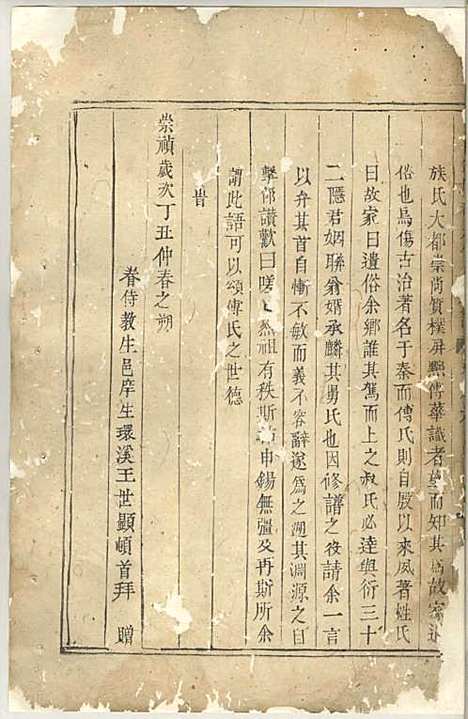 族氏大都崇尚質樸屏黜浮華識者望而知其為故家遺
俗也烏傷古治著名于秦而傅氏則自殷以來夙著姓氏
曰故家曰遺俗余鄉誰其駕而上之叔氏必達與衍三十
二隱君姻聯翁婿承麟其舅氏也因修譜之役請余一言
以弁其首自慚不敏而義不容辭遂為之溯其淵源之自
擊節讚歎曰嗟嗟烈祖有秩斯祜申錫無疆及再斯所余
謂此語可以頌傅氏之世德
旹
崇禎歲次丁丑仲春之朔
眷侍教生邑庠生環溪王世顯頓首拜 贈